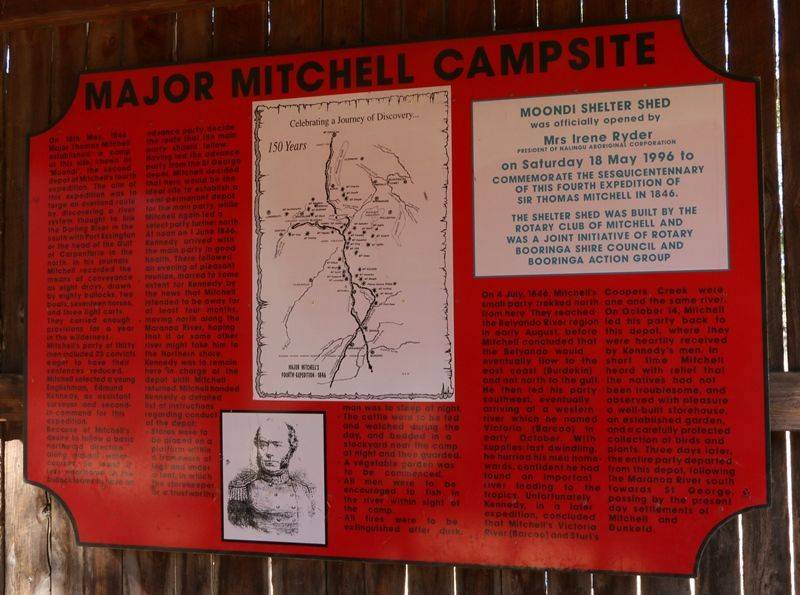 MAJOR MITCHELL CAMPSITE
On 18th May, 1846
Major Thomas Mitchell
established a camp
at this site, known as
'Moondi', the second
depot of Mitchell's fourth
expedition. The aim of
this expedition was to
forge an overland route
by discovering a river
system thought to link
the Darling River in the
south with Port Essington
or the head of the Gulf
of Carpentaria in the
north. In his journals
Mitchell recorded the
means of conveyance
as eight drays, drawn
by eighty bullocks, two
boats, seventeen horses,
and three light carts.
They carried enough
provisions for a year
in the wilderness.
Mitchell's party of thirty
men included 23 convicts
eager to have their
sentences reduced.
Mitchell selected a young
Englishman, Edmund
Kennedy, as assistant
surveyor and second-
in-command for this
expedition.
Because of Mitchell's
desire to follow a basic
northward direction
advance party decide
the route that the main
party should follow.
Having led the advance
party from the St George
depot, Mitchell decided
that here would be an
ideal site to establish a
semi-permanent depot
for the main party, while
Mitchell again led a
select party further north.
At noon on 1 June 1846,
Kennedy arrived with
the main party in good
health. There followed
an evening of pleasant
reunion, marred to some
extent for Kennedy by
the news that Mitchell
intended to be away for
at least four months,
moving north along the
Maranoa River, hoping
that it or some other
river might take him to
the Northern shore.
Kennedy was to remain
here "in charge of the
depot until Mitchell
returned. Mitchell handed
Kennedy a detailed
list of instructions
regarding conduct
of the depot:
- Stores were to
be placed on a
platform within
a framework of
logs and under
a tent, in which
the storekeeper,
or a trustworthy
Celebrating a Journey of Discovery...
150 Years
MAJOR MITCHELL'S
FOURTH EXPEDITION - 1846
man was to sleep at night.
- The cattle were to be fed
and watched during the
day, and bedded in a
stockyard near the camp
at night and then guarded.
- A vegetable garden was
to be commenced.
- All men were to be
encouraged to fish in
the river within sight of
the camp.
- All fires were to be
extinguished after dusk.
MOONDI SHELTER SHED
was officially opened by
Mrs Irene Ryder
PRESIDENT OF NALINGU ABORIGINAL CORPORATION
on Saturday 18 May 1996 to
COMMEMORATE THE SESQUICENTENNARY
OF THIS FOURTH EXPEDITION OF
SIR THOMAS MITCHELL IN 1846.
THE SHELTER SHED WAS BUILT BY THE
ROTARY CLUB OF MITCHELL AND
WAS A JOINT INITIATIVE OF ROTARY
BOORINGA SHIRE COUNCIL AND
BOORINGA ACTION GROUP
On 4 July, 1846, Mitchell's
small party trekked north
from here. They reached
the Belyando River region
in early August, before
Mitchell concluded that
the Belyando would
eventually flow to the
east coast (Burdekin)
and not north to the gulf.
He then led his party
southwest, eventually
arriving at a western
river which he named
Victoria (Barcoo) in
early October. With
supplies fast dwindling,
he hurried his men home-
wards, confident he had
found an important
river leading to the
tropics. Unfortunately,
Kennedy, in a later
expedition, concluded
that Mitchell's Victoria
River (Barcoo) and Sturt's
Coopers Creek were
one and the same river.
On October 14, Mitchell
led his party back to
this depot, where they
were heartily received
by Kennedy's men. In
short time Mitchell
heard with relief that
the natives had not
been troublesome, and
observed with pleasure
a well-built storehouse,
an established garden,
and a carefully protected
collection of birds and
plants. Three days later,
the entire party departed
from this depot, following
the Maranoa River south
towards St George,
passing by the present
day settlements of
Mitchell and
Dunkeld.